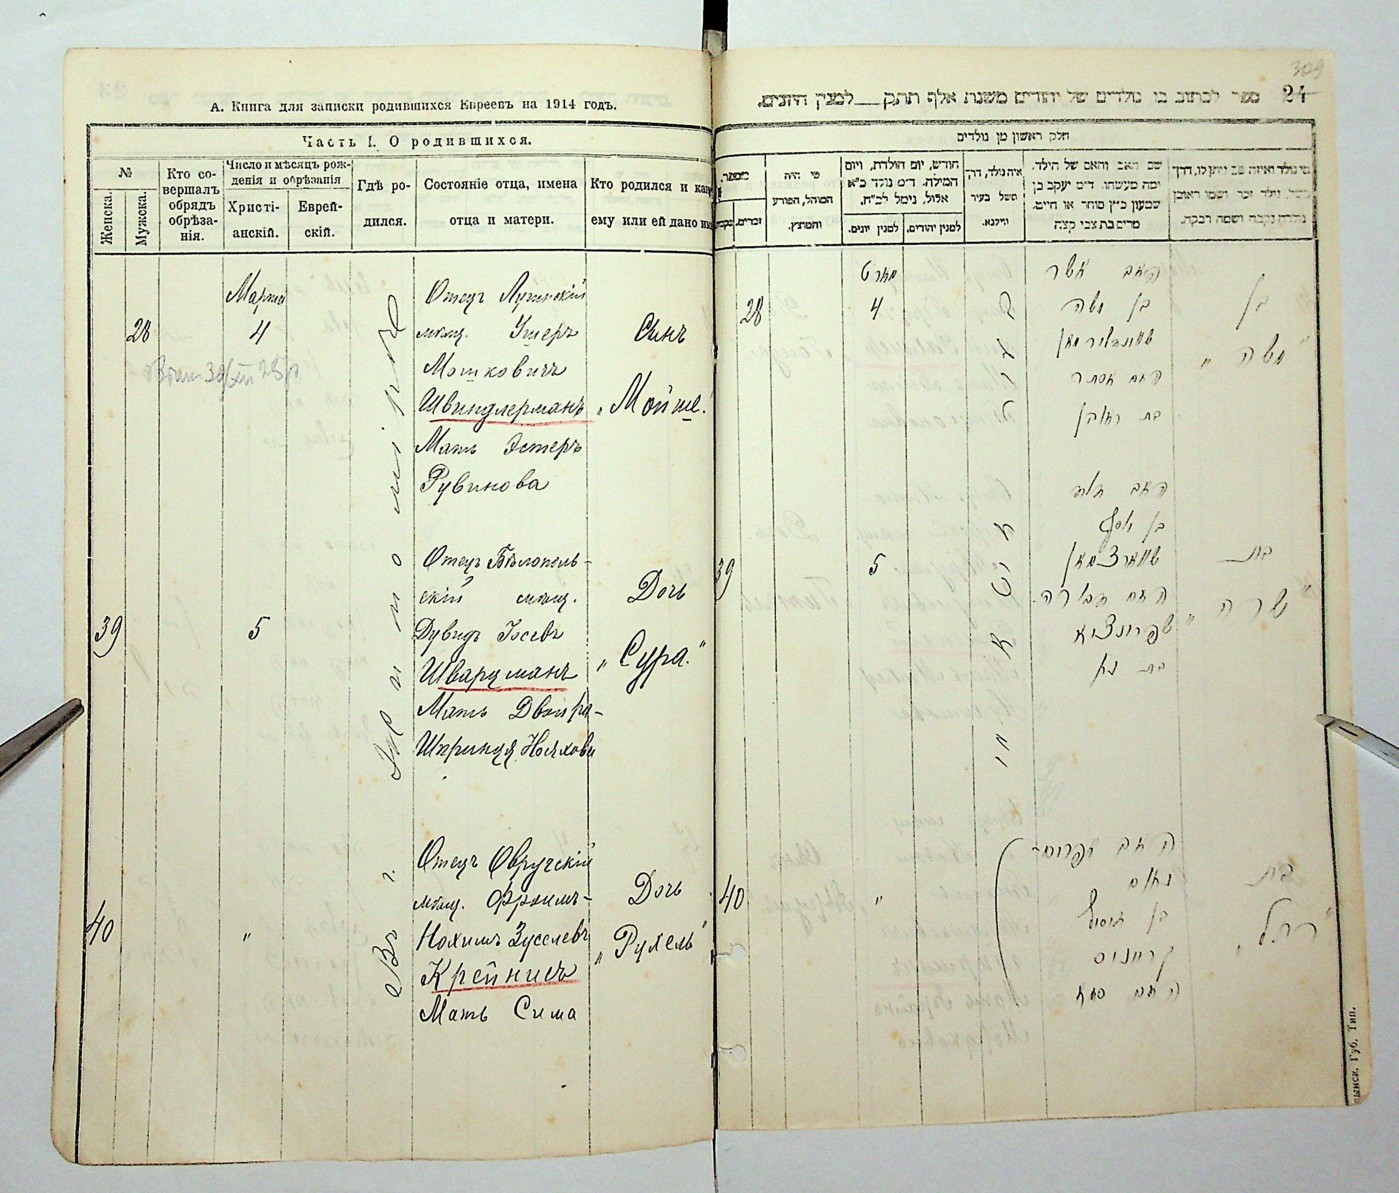 А. Книга для записки родившихся Евреевъ на 1914 годъ.
Часть I. О родившихся.
№
Женска.
Мужска.
Кто со-
вершалъ
обрядъ
обрѣза-
нія.
Число и мѣсяцъ рож-
денія и обрѣзанія
Христі-
анскій.
Еврей-
скій.
Гдѣ ро-
дился.
Состояніе отца, имена
отца и матери.
Кто родился и как
ему или ей дано им
28
Марта
4
Отецъ Лугинскій
мѣщ. Ушеръ
Мошковичъ
Швиндлерманъ
Мать Эстеръ
Рувинова
Сынъ
„Мойше.
39
5
Отецъ Бѣлополь-
скій мѣщ.
Дувидъ Іосевъ
Шварцманъ
Мать Двойра-
Шпринця Нояхова
Дочь
„Сура."
40
"
Отецъ Овручскій
мѣщ. Фроимъ-
Нохимъ Зуселевъ
Крейнисъ
Мать Сима
Дочь
„Рухель"
Въ г. Житомірѣ
309
24
ספר לכתוב בו נולדים של יהודים משנת אלף תתק למנין היונים.
חלק ראשון מן נולדים
מי היה
המוהל, הפורע
והמוצץ.
חודש, יום הולדת, ויום
המילה. ד״מ נולד כ״א
אלול, נימל לכ״ח.
למנין יונים.
למנין יהודים.
איה נולד, דרך
משל בעיר
ווילנא.
שם האב והאם של הילד.
ומה מעשהו. ד״מ יעקב בן
שמעון כ״ץ סוחר או חיים.
מרים בת צבי קצה
זכרים.
28
מארט
4
האב אשר
בן משה
שווינדלערמאן
האם אסתר
בת ראובן
בן
„משה"
39
5
האב דוד
בן יוסף
שווארצמאן
האם דבורה
שפרינצא
בת נח
בת
„שרה"
40
"
האב אפרים
נחום
בן זוסיל
קרייניס
האם סימא
בת
„רחל"
ынск. Губ. Тип.